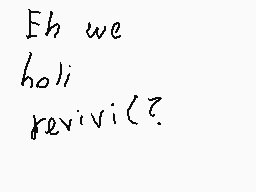 Eh we
holi
revivi(?